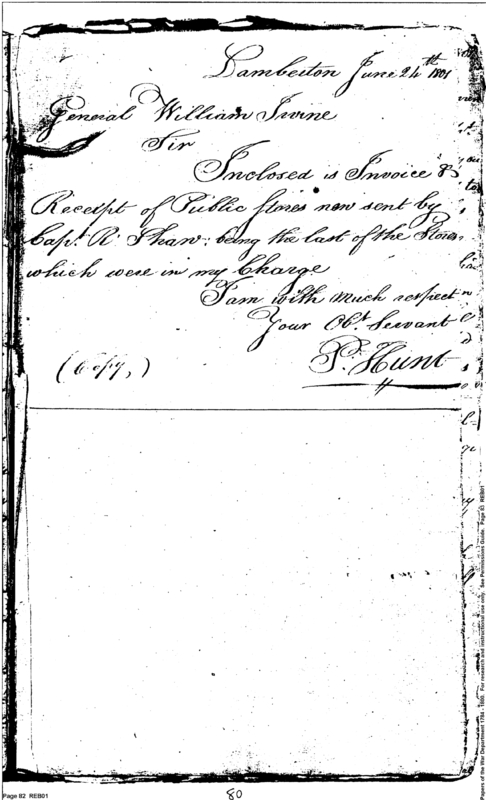 Lamberton June 24th 1801
General William Irvine
Sir
Inclosed is Invoice &
Receipt of Public Stores now sent by
Capt. R. Shaw; being the last of the Stores
which were in my Charge
I am with much respect
Your Obt. Servant
P. Hunt
(Copy,)
Page 82 REB01
80
Papers of the War Department 1784 - 1800. For research and instructional use only. See Permissions Guide. Page 83 REB01